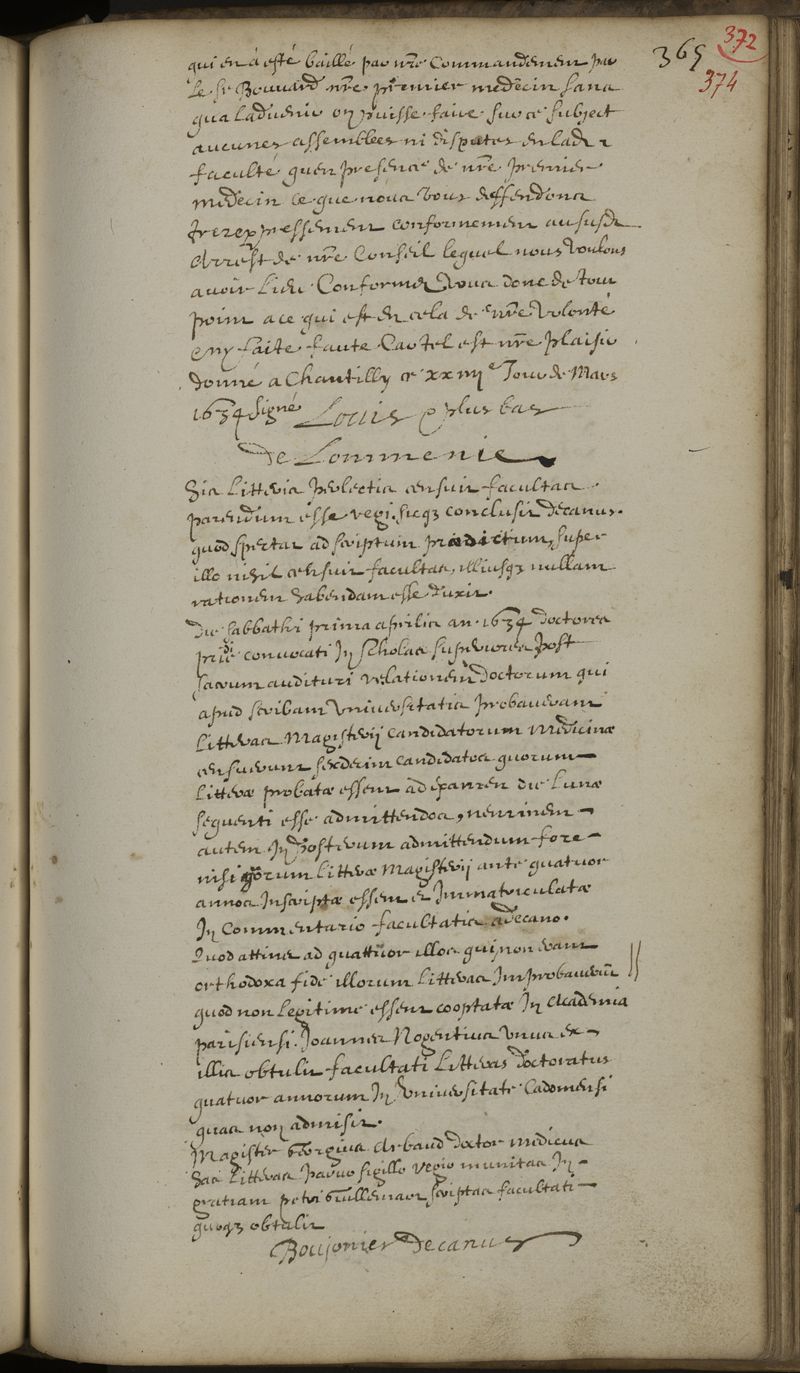 365
372
374
qui en a esté baillé par nr̃e Commandement par
le sr Bouvard nr̃e premier medecin sans
qua ladvenir on puisse faire sur ce subject
aucunes assemblees ni disputes en lade
faculté quen presence de nr̃e premier
medecin ce que nous vous deffendons
trezexpressement conformement au susde
Arrest de nr̃e Conseil lequel nous voulons
avoir lieu Conformez vous donc de tout
point a ce qui est en cela de nr̃e volonté
e ny faite faute Car tel est nr̃e plaisir
donné a Chantilly ce xxiiij e Jour de Mars
1634 signé Louis e plus bas
De Lommenie
His litteris prelectis censuit facultas
parendum esse regi sicqz conclusit decanus.
quod spectat ad scriptum prædictum, super
illo nihil censuit facultas, illiusqz nullam
rationem habendam esse duxit.
Die sabbathi prima aprilis an. 1634 doctores
pridi convocati In scholas superiores post
sacrum audituri relationem doctorum qui
apud scribam Universitatis probaverant
litteras Magisterij candidatorum Medicinæ
censuerunt sexdecim candidatos quorum
litteræ probatæ essent ad examen die lunæ
sequenti esse admittendos, neminem
autem In posterum admittendum fore
nisi quorum litteræ Magisterij ante quatuor
annos Inscriptæ essent et Immatriculatæ
In Commentario facultatis a decano.
Quod attinet ad quattuor illos qui non erant
orthodoxa fide illorum litteras Improbaverũt
quod non legitime essent cooptatæ In Academia
parisiensi. Joannes Nogentius unus ex
illis obtulit facultati litteras doctoratus
quatuor annorum In Universitate Cadomensi
quas non admisit.
Magister Georgius Arbaud doctor medicus
has litteras parvo sigillo regio munitas In
gratiam petri Guillemar scriptas facultati
quoqz obtulit
Boujonier Decanus